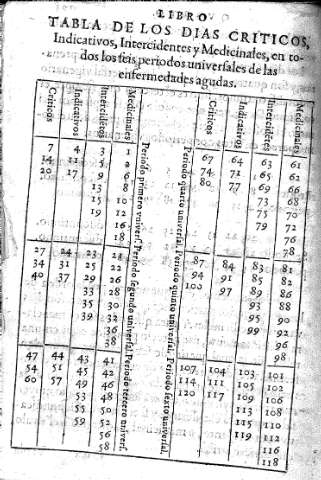 LIBRO
TABLA DE LOS DIAS CRITICOS,
Indicativos, Intercidentes y Medicinales, en to-
dos los seis periodos universales de las
enfermedades agudas.
Criticos Indicativos Intercidētes Medicinales
7 4 3 1
14 11 5 2
20 17 9 6
13 8
15 10
19 12
16
18
Periodo primero univers.
27 24 23 21
34 31 25 22
40 37 29 26
33 28
35 30
39 32
36
38
Periodo segundo universal.
47 44 43 41
54 51 45 42
60 57 49 46
53 48
55 50
59 52
56
58
Periodo tercero univers.
Criticos Indicativos Intercidētes Medicinales
67 64 63 61
74 71 65 62
80 77 69 66
73 68
75 70
79 72
76
78
Periodo quarto universal.
87 84 83 81
94 91 85 82
100 97 89 86
93 88
95 90
99 92
96
98
Periodo quinto universal.
107 104 103 101
114 111 105 102
120 117 109 106
113 108
115 110
119 112
116
118
Periodo sexto universal.